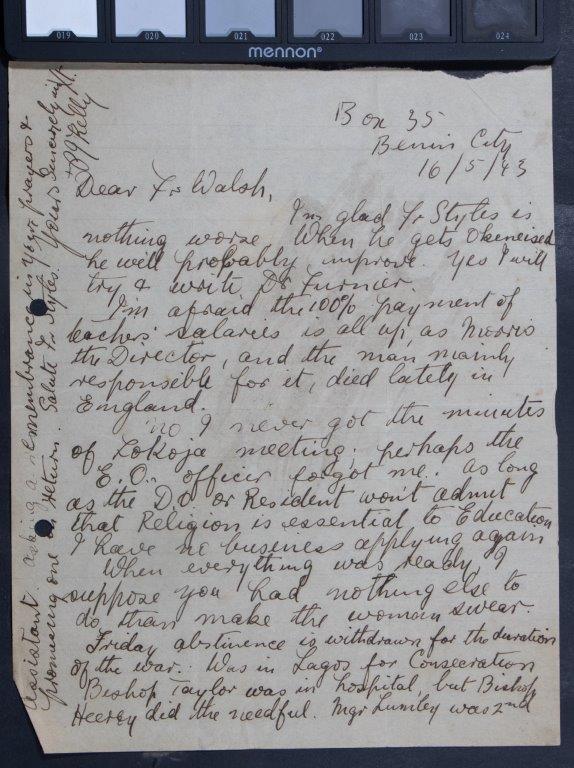 019 020 021 022 023 024
mennon®
Box 35
Benin City
16/5/43
Dear Fr Walsh,
I'm glad Fr Styles is
nothing worse. When he gets Okeneised
he will probably improve. Yes I will
try & write Dr Turnier.
I'm afraid the 100% payment of
teachers' salaries is all up, as Morris
the Director, and the man mainly
responsible for it, died lately in
England.
No I never got the minutes
of Lokoja meeting; perhaps the
E.O. officer forgot me. As long
as the DO or Resident won't admit
that Religion is essential to Education
I have no business applying again
When everything was ready, I
suppose you had nothing else to
do than make the woman swear.
Friday abstinence is withdrawn for the duration
of the war. Was in Lagos for Consecration
Bishop Taylor was in hospital, but Bishop
Heerey did the needful. Mgr Lumley was 2nd
assistant. Asking a remembrance in your prayers &
promising one in return. Salute Fr Styles. Yours sincerely in Xt.
+ P J Kelly